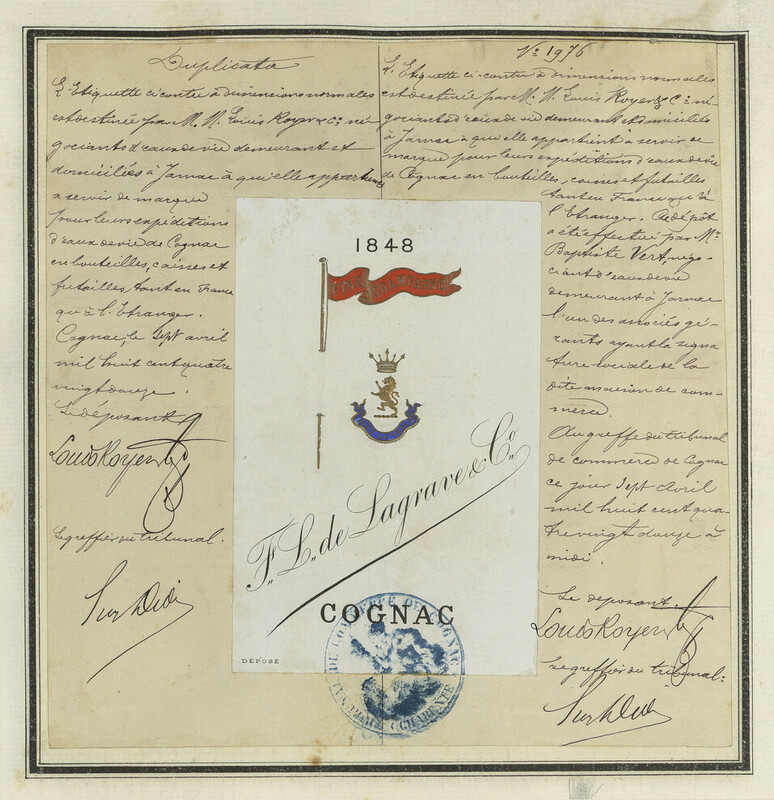 Duplicata
L'Etiquette ci contre à dimensions normales
est destinée par M. M. Louis Royer & Cie. né-
gociants d'eaux de vie demeurant et
domiciliés à Jarnac à qui elle appartient
à servir de marque
pour leurs expéditions
d'eaux de vie de Cognac
en bouteilles, caisses et
futailles, tant en France
qu'à l'Etranger.
Cognac, le sept avril
mil huit cent quatre
vingt douze.
Le déposant
Louis Royer
Le greffier du tribunal.
No 1976
L'Etiquette ci-contre à dimensions normales
est destinée par M. M. Louis Royer & Cie. né-
gociants d'eaux de vie demeurant et domiciliés
à Jarnac à qui elle appartient à servir de
marque pour leurs expéditions d'eaux de vie
de Cognac en bouteilles, caisses et futailles
tant en France qu'à
l'Etranger. Ce dépôt
a été effectué par Mr.
Baptiste Vert, négo-
ciant d'eaux de vie
demeurant à Jarnac
l'un des associés gé-
rants ayant la signa
ture sociale de la
dite maison de com-
merce.
Au greffe du tribunal
de commerce de Cognac
ce jour sept Avril
mil huit cent qua-
tre vingt douze à
midi.
Le déposant.
Louis Royer
Le greffier du tribunal.
1848
FINE CHAMPAGNE
F. L. de Lagrave & Co.
COGNAC
DÉPOSÉ
TRIBUNAL DE COMMERCE DE COGNAC
(CHARENTE)